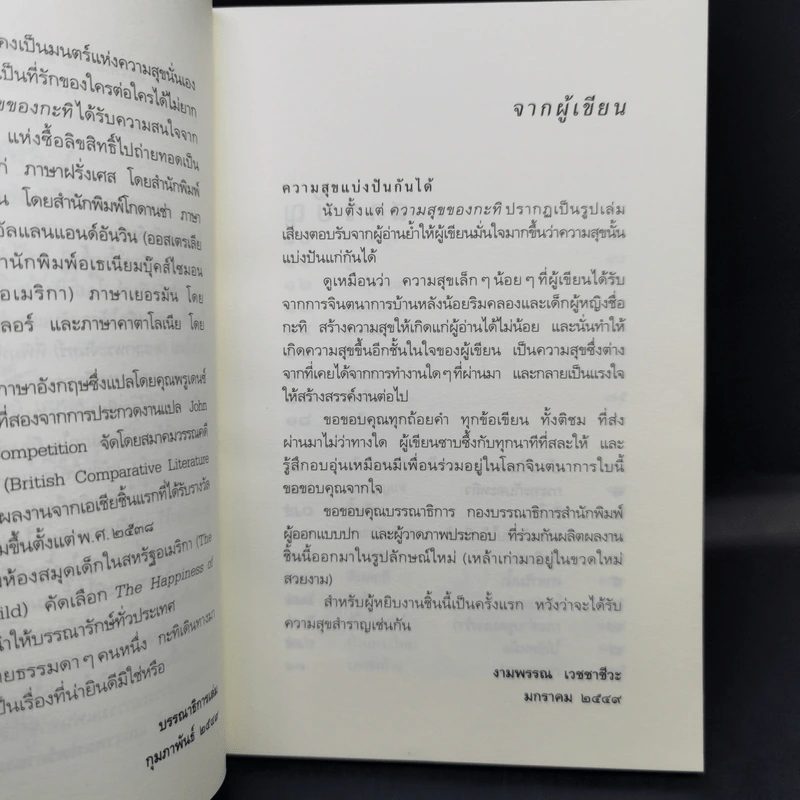 คงเป็นมนตร์แห่งความสุขนั่นเอง
เป็นที่รักของใครต่อใครได้ไม่ยาก
ของกะทิ ได้รับความสนใจจาก
แห่งซื้อลิขสิทธิ์ไปถ่ายทอดเป็น
ภาษาฝรั่งเศส โดยสำนักพิมพ์
โดยสำนักพิมพ์โกดานชา ภาษา
อัลแลนแอนด์อันวิน (ออสเตรเลีย
สำนักพิมพ์อเธเนียมบุ๊คส์ไซมอน
อเมริกา) ภาษาเยอรมัน โดย
และภาษาคาตาโลเนีย โดย
ภาษาอังกฤษซึ่งแปลโดยคุณพรูเดนซ์
ที่สองจากการประกวดงานแปล John
Competition จัดโดยสมาคมวรรณคดี
(British Comparative Literature
ผลงานจากเอเชียชิ้นแรกที่ได้รับรางวัล
ขึ้นตั้งแต่ พ.ศ. ๒๕๓๘
ห้องสมุดเด็กในสหรัฐอเมริกา (The
คัดเลือก The Happiness of
นำให้บรรณารักษ์ทั่วประเทศ
ธรรมดา ๆ คนหนึ่ง กะทิเดินทางมา
เป็นเรื่องที่น่ายินดีมิใช่หรือ
บรรณาธิการเล่ม
กุมภาพันธ์ ๒๕๔๙
จากผู้เขียน
ความสุขแบ่งปันกันได้
นับตั้งแต่ ความสุขของกะทิ ปรากฏเป็นรูปเล่ม
เสียงตอบรับจากผู้อ่านย้ำให้ผู้เขียนมั่นใจมากขึ้นว่าความสุขนั้น
แบ่งปันแก่กันได้
ดูเหมือนว่า ความสุขเล็ก ๆ น้อย ๆ ที่ผู้เขียนได้รับ
จากการจินตนาการบ้านหลังน้อยริมคลองและเด็กผู้หญิงชื่อ
กะทิ สร้างความสุขให้เกิดแก่ผู้อ่านได้ไม่น้อย และนั่นทำให้
เกิดความสุขขึ้นอีกชั้นในใจของผู้เขียน เป็นความสุขซึ่งต่าง
จากที่เคยได้จากการทำงานใด ๆ ที่ผ่านมา และกลายเป็นแรงใจ
ให้สร้างสรรค์งานต่อไป
ขอขอบคุณทุกถ้อยคำ ทุกข้อเขียน ทั้งติชม ที่ส่ง
ผ่านมาไม่ว่าทางใด ผู้เขียนซาบซึ้งกับทุกนาทีที่สละให้ และ
รู้สึกอบอุ่นเหมือนมีเพื่อนร่วมอยู่ในโลกจินตนาการใบนี้
ขอขอบคุณจากใจ
ขอขอบคุณบรรณาธิการ กองบรรณาธิการสำนักพิมพ์
ผู้ออกแบบปก และผู้วาดภาพประกอบ ที่ร่วมกันผลิตผลงาน
ชิ้นนี้ออกมาในรูปลักษณ์ใหม่ (เหล้าเก่ามาอยู่ในขวดใหม่
สวยงาม)
สำหรับผู้หยิบงานชิ้นนี้เป็นครั้งแรก หวังว่าจะได้รับ
ความสุขสำราญเช่นกัน
งามพรรณ เวชชาชีวะ
มกราคม ๒๕๔๙